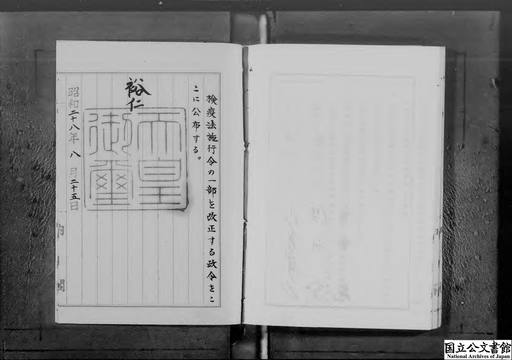 検疫法施行令の一部を改正する政令をこ
こに公布する。
裕仁
天皇
御璽
昭和二十八年八月二十五日
内閣
国立公文書館
National Archives of Japan